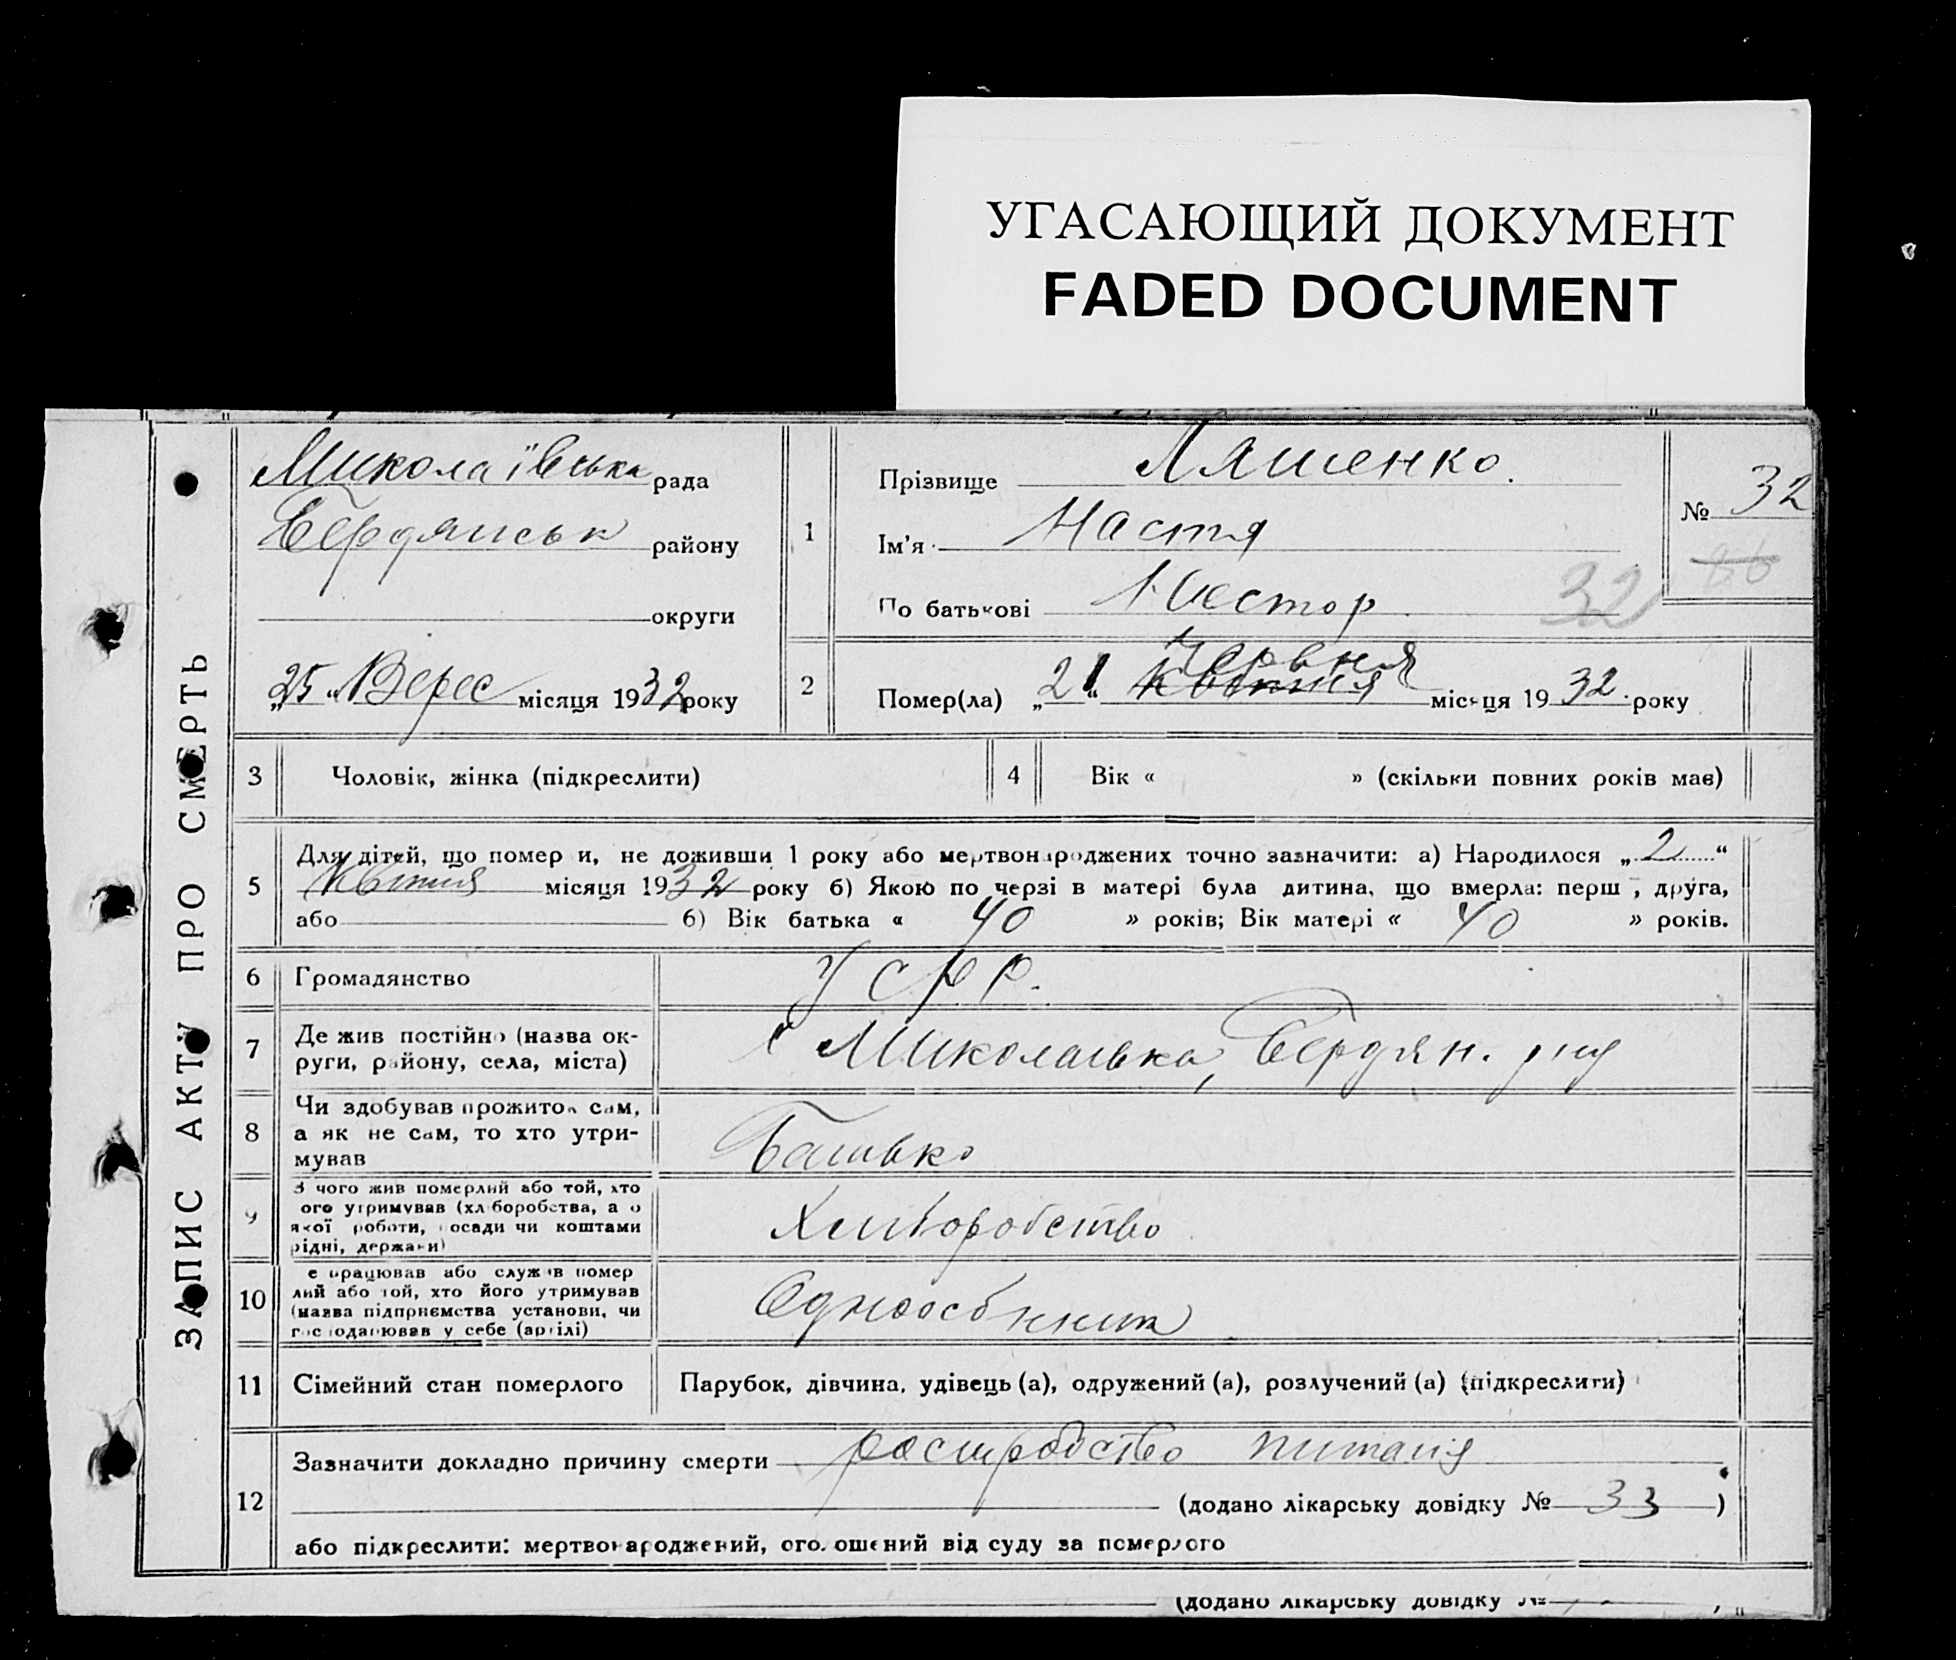 УГАСАЮЩИЙ ДОКУМЕНТ
FADED DOCUMENT
ЗАПИС АКТУ ПРО СМЕРТЬ
Миколаївська рада
Бердянськ району
округи
„25“ Верес місяця 1932 року
1
Прізвище Ляшенко.
Ім'я Настя
По батькові Нестор
№ 32
86
32
2
Помер(ла) „21“ Червня Квітня місяця 1932 року
3 Чоловік, жінка (підкреслити)
4 Вік « » (скільки повних років має)
5
Для дітей, що померли, не доживши 1 року або мертвонароджених точно зазначити: а) Народилося „2“
Квітня місяця 1932 року б) Якою по черзі в матері була дитина, що вмерла: перша, друга,
або б) Вік батька « 40 » років; Вік матері « 40 » років.
6 Громадянство УСРР.
7
Де жив постійно (назва ок-
руги, району, села, міста)
с Миколаївка, Бердян. р-ну
8
Чи здобував прожиток сам,
а як не сам, то хто утри-
мував
Батько
9
З чого жив померлий або той, хто
ого утримував (хліборобства, а о
якої роботи, посади чи коштами
рідні, держави)
Хліборобство
10
е працював або служив помер
лий або той, хто його утримував
(назва підприємства установи, чи
господарював у себе (артілі)
Одноосібник
11 Сімейний стан померлого
Парубок, дівчина, удівець (а), одружений (а), розлучений (а) (підкреслити)
12
Зазначити докладно причину смерти росптройство питанія
(додано лікарську довідку № 33 )
або підкреслити: мертвонароджений, оголошений від суду за померлого
(додано лікарську довідку №